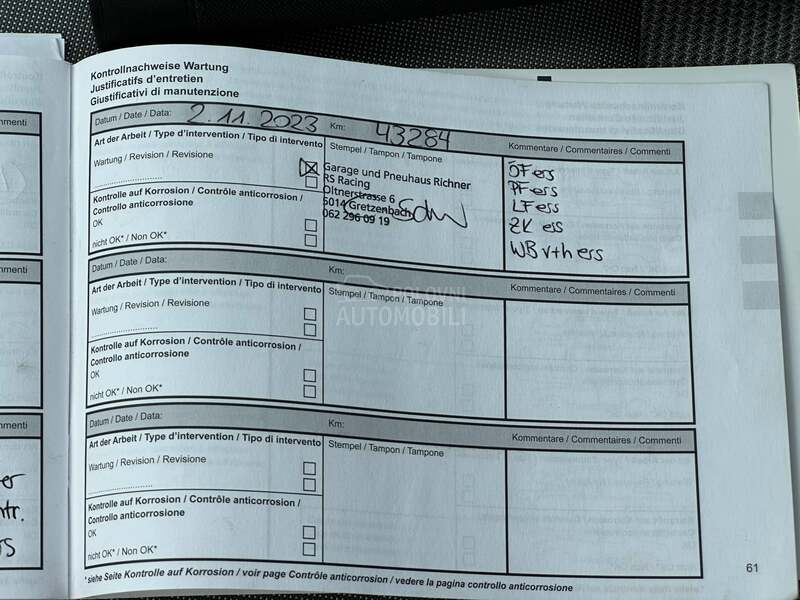 Kontrollnachweise Wartung
Justificatifs d'entretien
Giustificativi di manutenzione
Datum / Date / Data: 2.11.2023 Km: 43284
Art der Arbeit / Type d'intervention / Tipo di intervento
Stempel / Tampon / Tampone
Kommentare / Commentaires / Commenti
Wartung / Revision / Revisione
Garage und Pneuhaus Richner
RS Racing
Oltnerstrasse 6
5014 Gretzenbach
062 296 09 19
ÖF ers
PF ers
LF ers
ZK ers
WB v+h ers
Kontrolle auf Korrosion / Contrôle anticorrosion /
Controllo anticorrosione
OK
nicht OK* / Non OK*
Datum / Date / Data: Km:
Art der Arbeit / Type d'intervention / Tipo di intervento
Stempel / Tampon / Tampone
Kommentare / Commentaires / Commenti
Wartung / Revision / Revisione
POLOVNI
AUTOMOBILI
Kontrolle auf Korrosion / Contrôle anticorrosion /
Controllo anticorrosione
OK
nicht OK* / Non OK*
Datum / Date / Data: Km:
Art der Arbeit / Type d'intervention / Tipo di intervento
Stempel / Tampon / Tampone
Kommentare / Commentaires / Commenti
Wartung / Revision / Revisione
Kontrolle auf Korrosion / Contrôle anticorrosion /
Controllo anticorrosione
OK
nicht OK* / Non OK*
*siehe Seite Kontrolle auf Korrosion / voir page Contrôle anticorrosion / vedere la pagina controllo anticorrosione
61